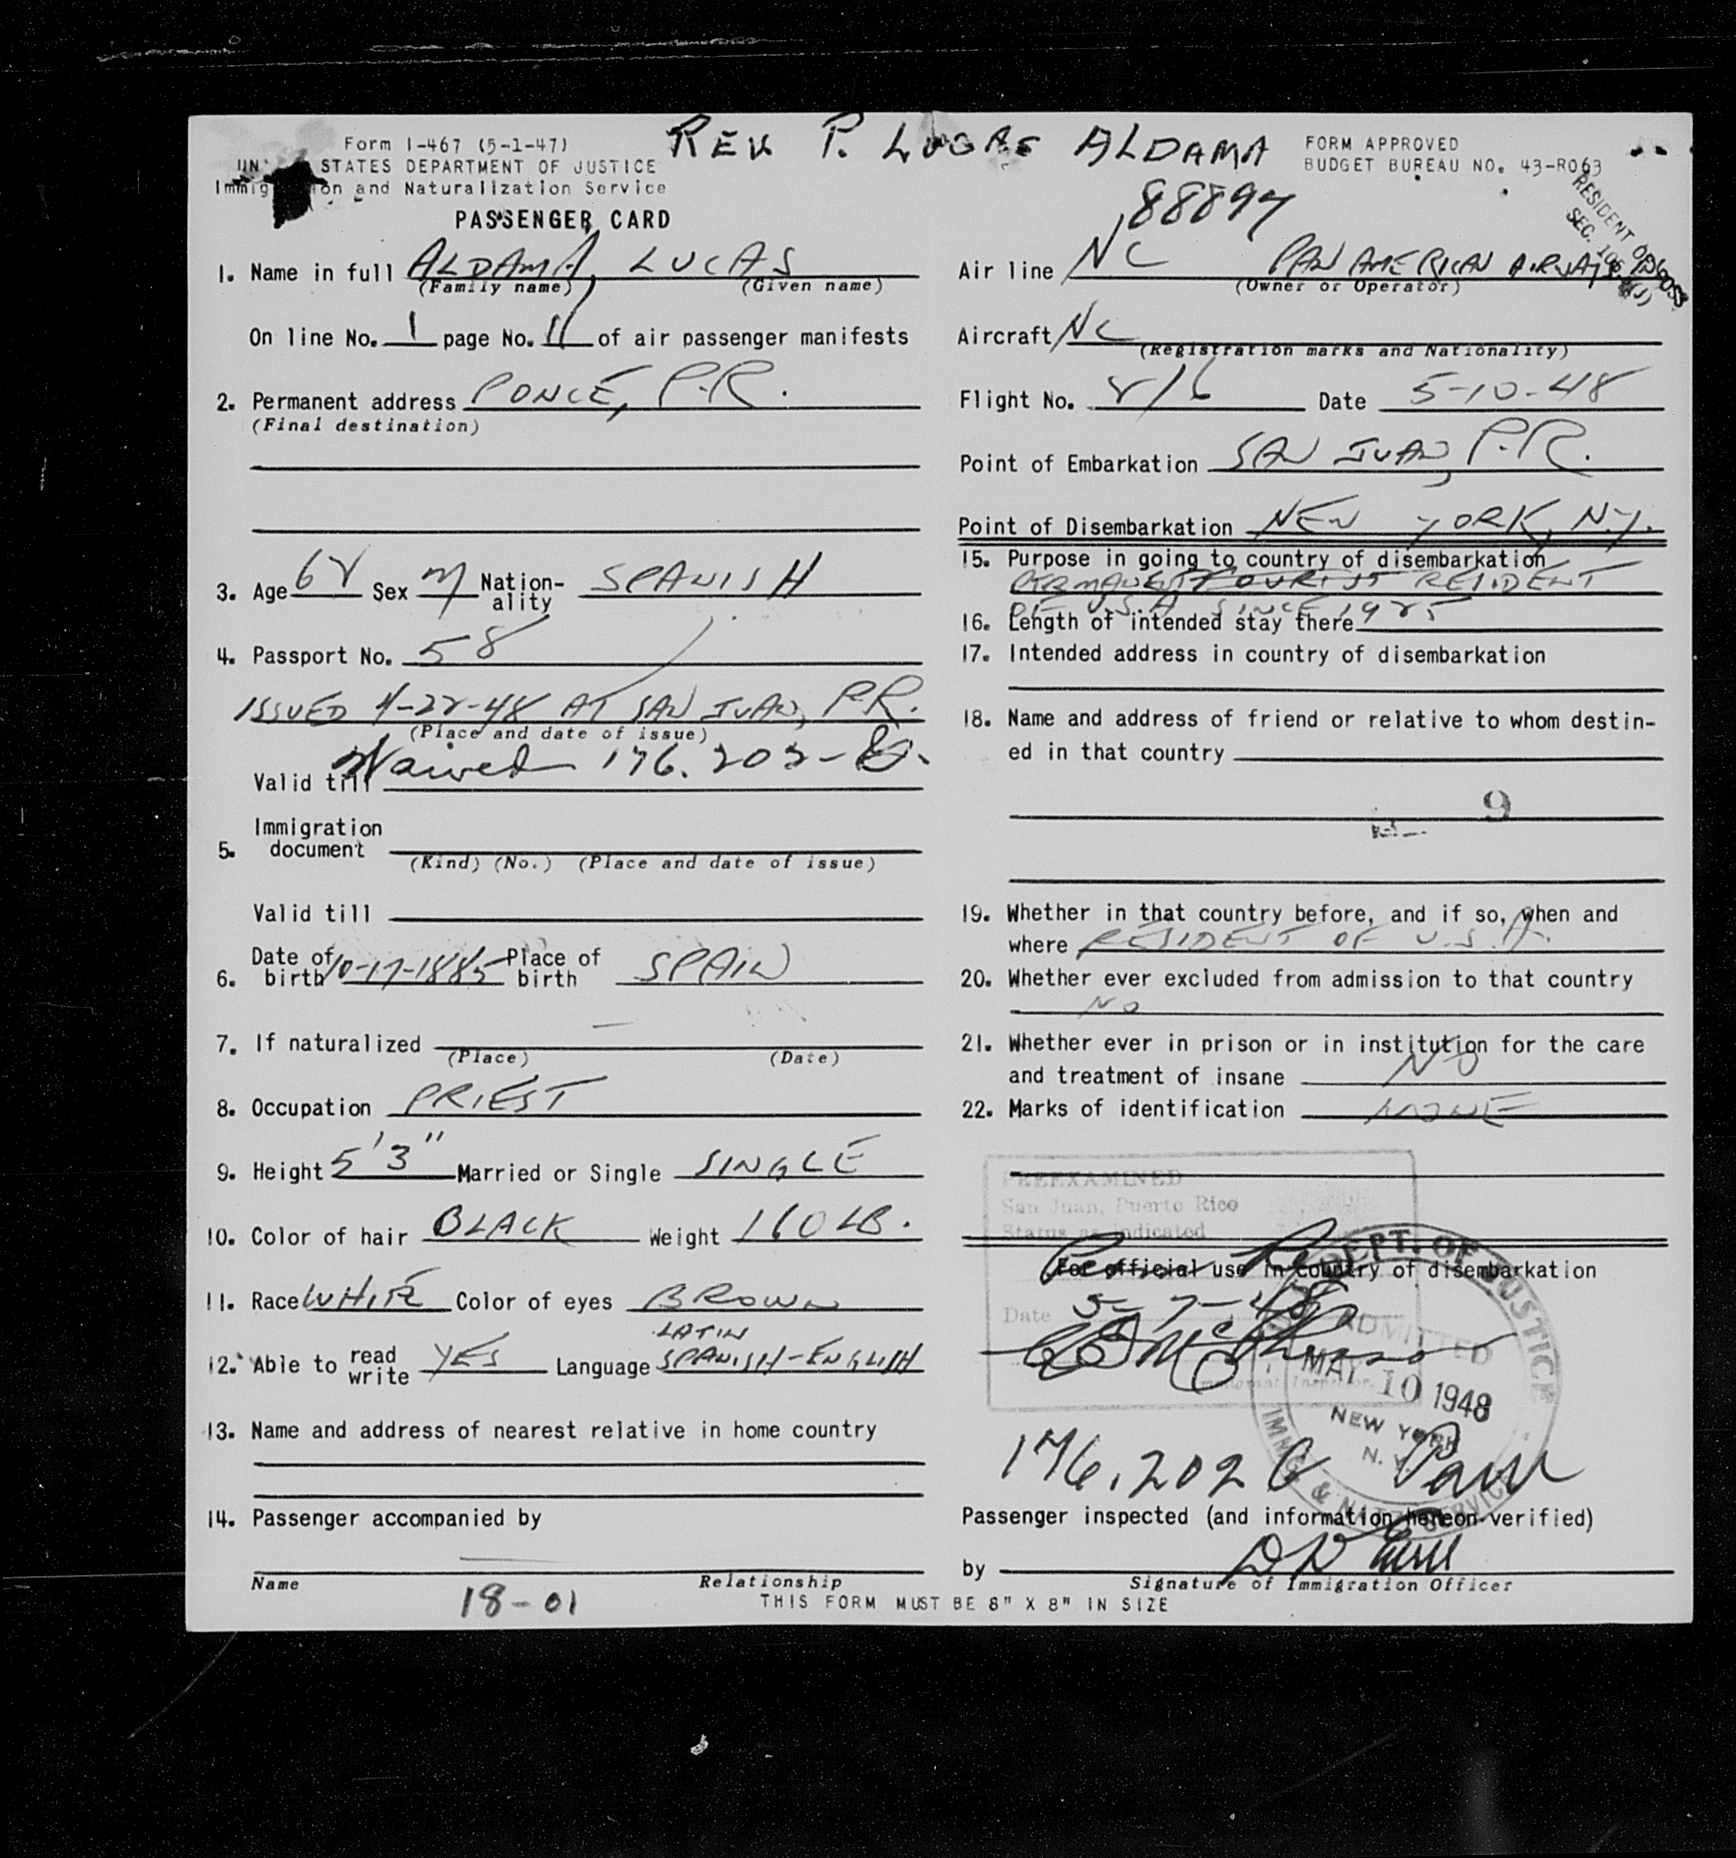 REV P. LUCAS ALDAMA
Form I-467 (5-1-47)
STATES DEPARTMENT OF JUSTICE
Immig on and Naturalization Service
PASSENGER CARD
1. Name in full ALDAMA, LUCAS
(Family name) (Given name)
On line No. 1 page No. 11 of air passenger manifests
2. Permanent address PONCE, P.R.
(Final destination)
3. Age 62 Sex M Nation-ality SPANISH
4. Passport No. 58
ISSUED 4-22-48 AT SAN JUAN, P.R.
(Place and date of issue)
Valid till Waived 176.202-
5. Immigration document
(Kind) (No.) (Place and date of issue)
Valid till
6. Date of birth 10-17-1885 Place of birth SPAIN
7. If naturalized —
(Place) (Date)
8. Occupation PRIEST
9. Height 5'3" Married or Single SINGLE
10. Color of hair BLACK Weight 160 LB.
11. Race WHITE Color of eyes BROWN
LATIN
12. Able to read write YES Language SPANISH-ENGLISH
13. Name and address of nearest relative in home country
14. Passenger accompanied by
Name Relationship
18-01
THIS FORM MUST BE 8" X 8" IN SIZE
FORM APPROVED
BUDGET BUREAU NO. 43-R063
RESIDENT OF
SEC.
88897
Air line NC PAN AMERICAN AIRWAYS
(Owner or Operator)
Aircraft NC
(Registration marks and Nationality)
Flight No. 216 Date 5-10-48
Point of Embarkation SAN JUAN, P.R.
Point of Disembarkation NEW YORK, N.Y.
15. Purpose in going to country of disembarkation
PERMANENT RESIDENT
OF U.S.A. SINCE 1925
16. Length of intended stay there
17. Intended address in country of disembarkation
18. Name and address of friend or relative to whom destin-
ed in that country
9
19. Whether in that country before, and if so, when and
where RESIDENT OF U.S.A.
20. Whether ever excluded from admission to that country
NO
21. Whether ever in prison or in institution for the care
and treatment of insane NO
22. Marks of identification NONE
PREEXAMINED
San Juan, Puerto Rico
Status as indicated
For official use in country of disembarkation
Date 5-7-48
DEPT. OF JUSTICE
ADMITTED
MAY 10 1948
NEW YORK
N.Y.
IMMIG. & NATZ. SERVICE
176.202
Passenger inspected (and information hereon verified)
by
Signature of Immigration Officer